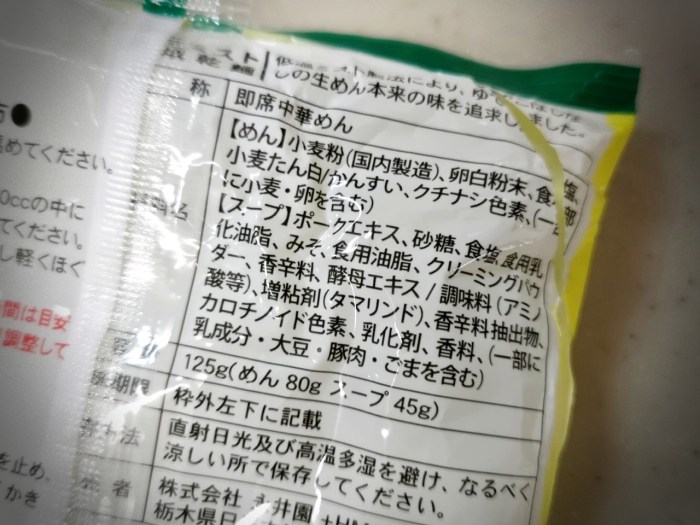 低温ミスト製法により、ゆでこぼしな
しの生めん本来の味を追求しました。
称
即席中華めん
【めん】小麦粉(国内製造)、卵白粉末、食塩、
小麦たん白/かんすい、クチナシ色素、(一部
に小麦・卵を含む)
【スープ】ポークエキス、砂糖、食塩、食用乳
化油脂、みそ、食用油脂、クリーミングパウ
ダー、香辛料、酵母エキス/調味料(アミノ
酸等)、増粘剤(タマリンド)、香辛料抽出物、
カロチノイド色素、乳化剤、香料、(一部に
乳成分・大豆・豚肉・ごまを含む)
125g(めん 80g スープ 45g)
期限
枠外左下に記載
法
直射日光及び高温多湿を避け、なるべく
涼しい所で保存してください。
者
株式会社 井園
栃木県日
めてください。
0ccの中に
てください。
し軽くほぐ
間は目安
調整して
を止め、
かき